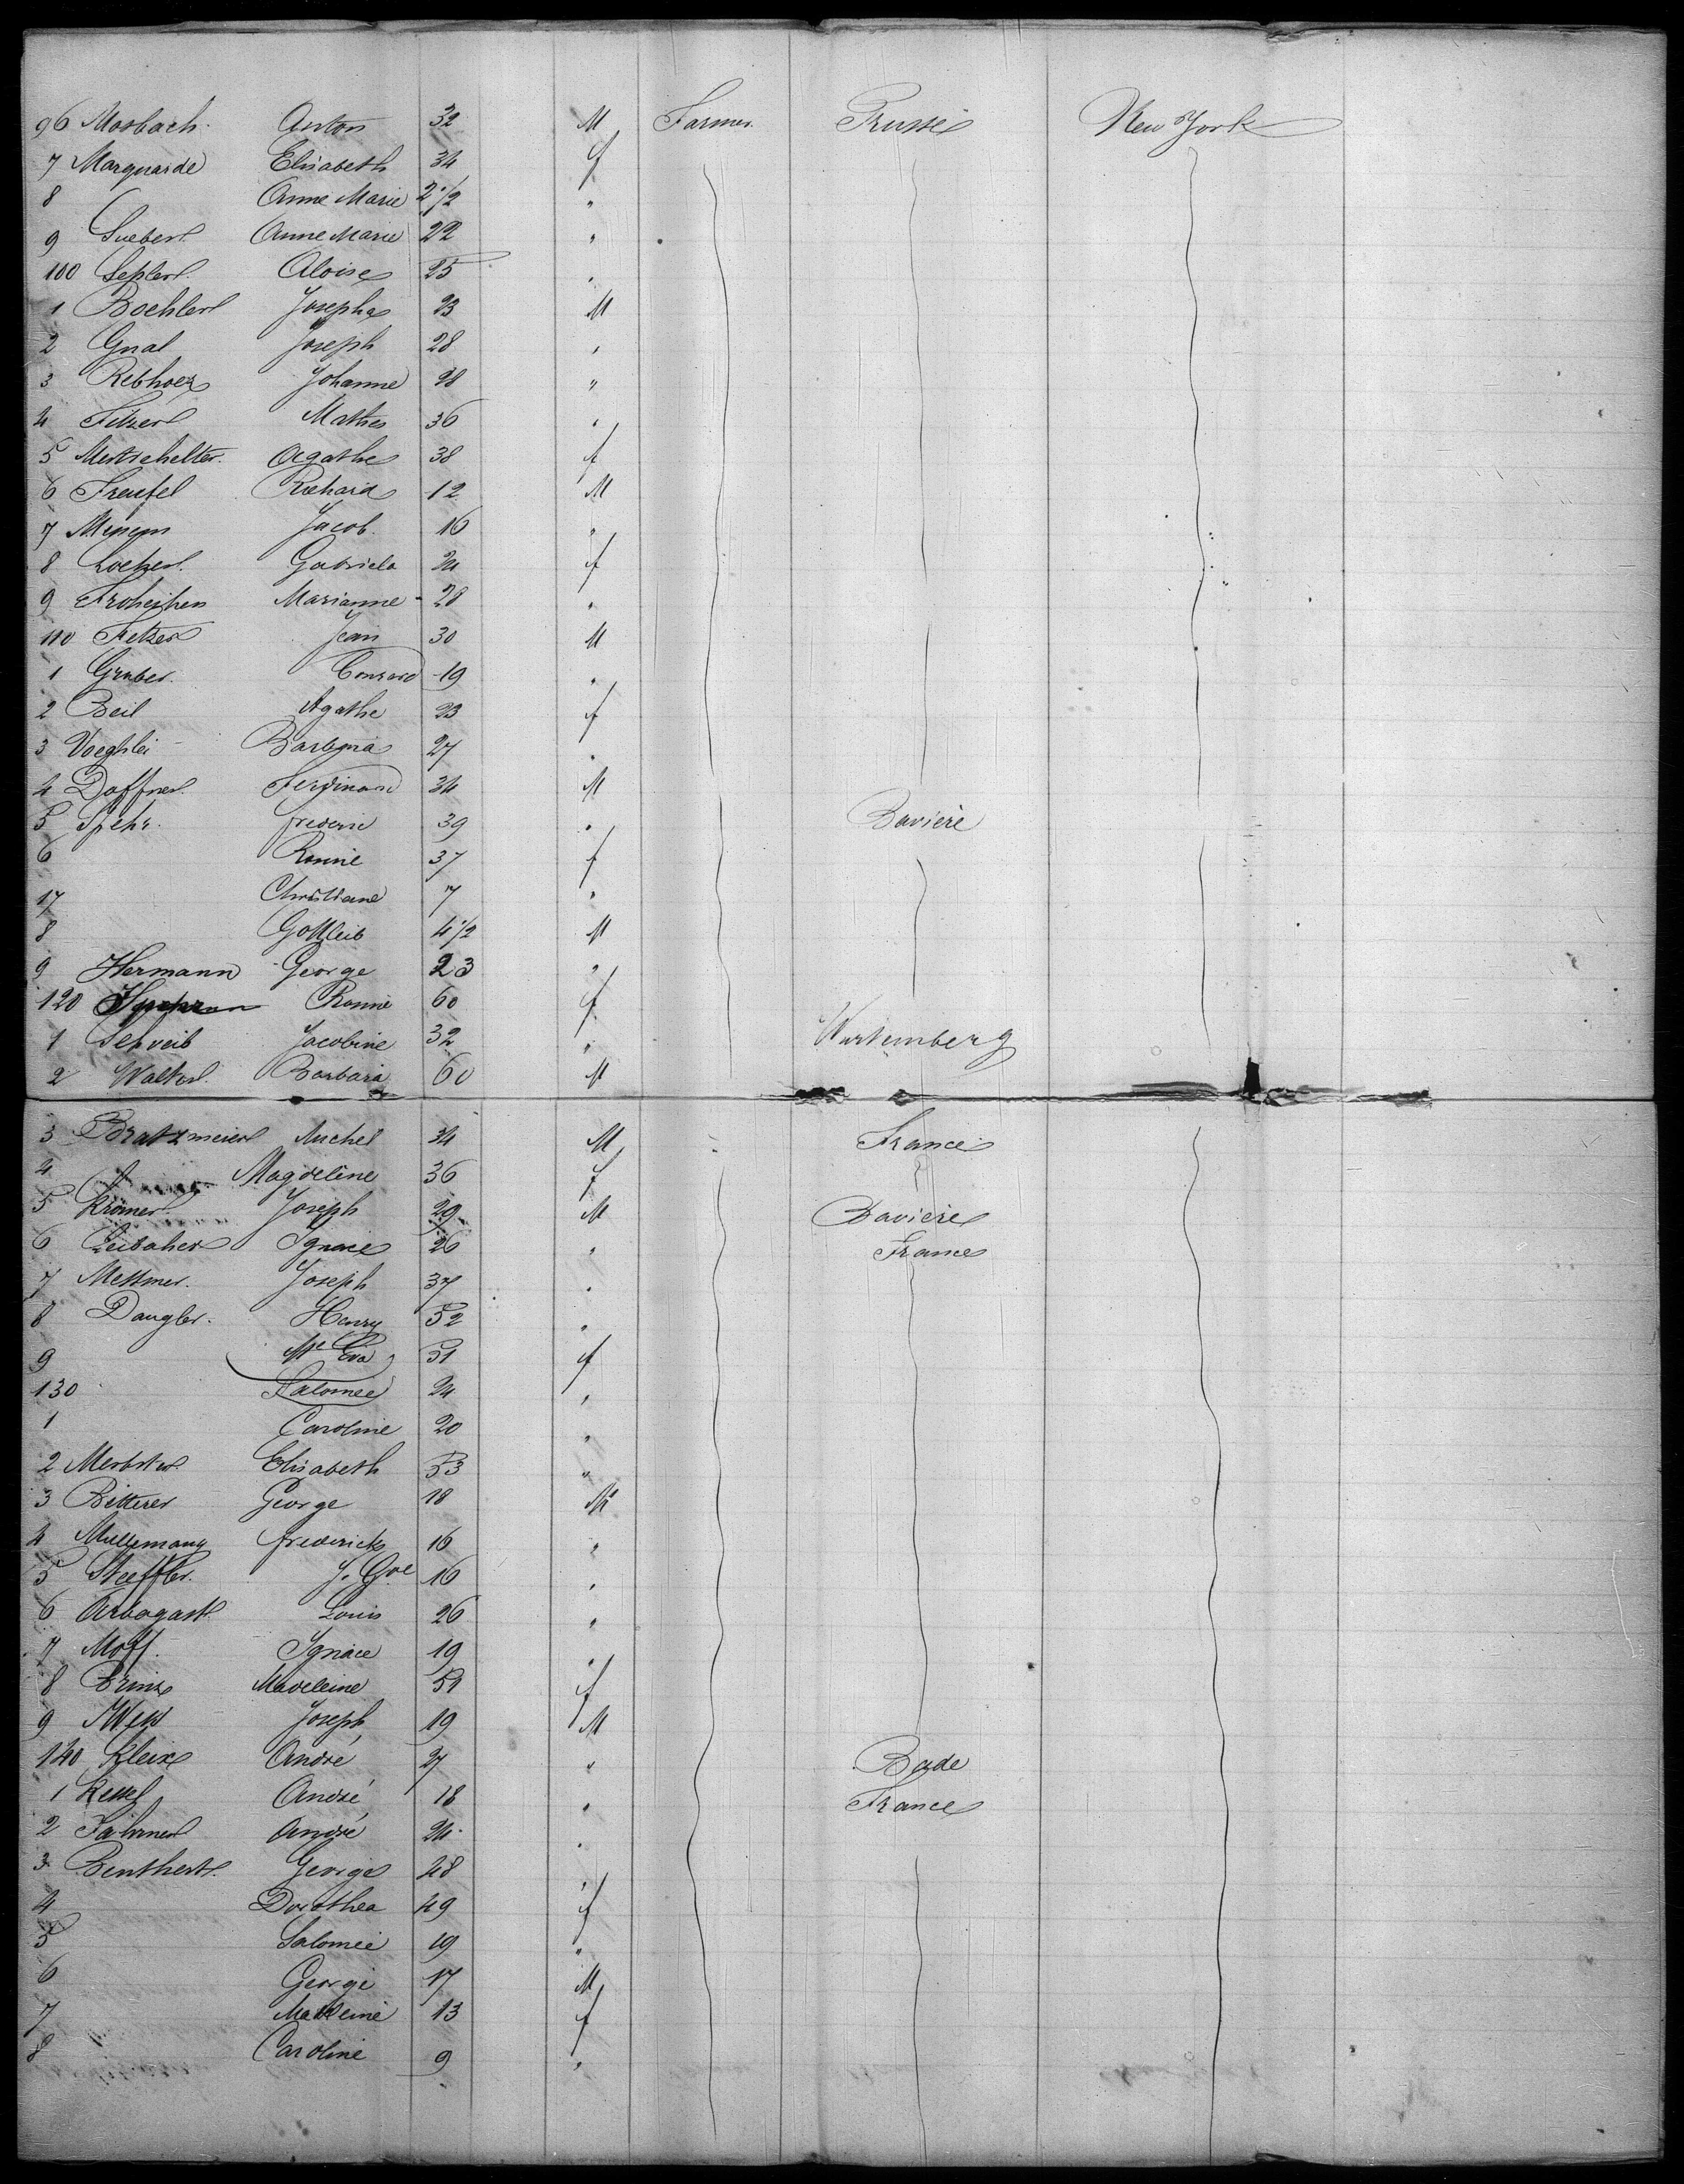 96 Mosbach. Anton 32 M Farmer. Prusse New York
7 Marquarde Elisabeth 34 f
8 Anne Marie 2 1/2 "
9 Sueberl Anne Marie 22 "
100 Seplerl Aloise 25 "
1 Boehlerl Josepha 23 M
2 Gnal Joseph 28 "
3 Rebhoez Johanne 28 "
4 Fitzerl Mathes 36 "
5 Mertschelter. Agathe 38 f
6 Freufel Richard 12 M
7 Jacob. 16 "
8 Gabriela 24 f
9 Marianne 28 "
110 Fetzer Jean 30 M
1 Gruber. Conrard 19 "
2 Beil Agathe 23 f
3 Voeghlei Barbara 27 "
4 Doffner Ferdinand 34 M
5 Spehr. frederic 39 " Baviere
6 Ronne 37 f
17 Christiane 7 "
8 Gottleib 4 1/2 M
9 Hermann George 23 "
120 Ronne 60 f
1 Schveib Jacobine 32 " Wurtemberg
2 Walter Barbara 60 M
3 Bratzmeier Michel 34 M France
4 Magdeline 36 f
5 Krömer Joseph 29 M Baviere
6 Zeibaher Ignace 26 " France
7 Messmer. Joseph 37 "
8 Dangler. Henry 52 "
9 Me Eva 51 f
130 Salomee 24 "
1 Caroline 20 "
2 Merbster Elisabeth 53 "
3 Bitterer George 18 M
4 Mullemany frederick 16 "
5 Steffler. J. Gve 16 "
6 Arbogast Louis 26 "
7 Moff. Ignace 19 "
8 Brinz Madeleine 51 f
9 Joseph 19 M
140 Kleix André 27 " Bade
1 Kessel André 18 " France
2 Fahrner André 24 "
3 Benthert George 48 "
4 Dorothea 49 f
5 Salomee 19 "
6 George 17 M
7 Madleine 13 f
8 Caroline 9 "